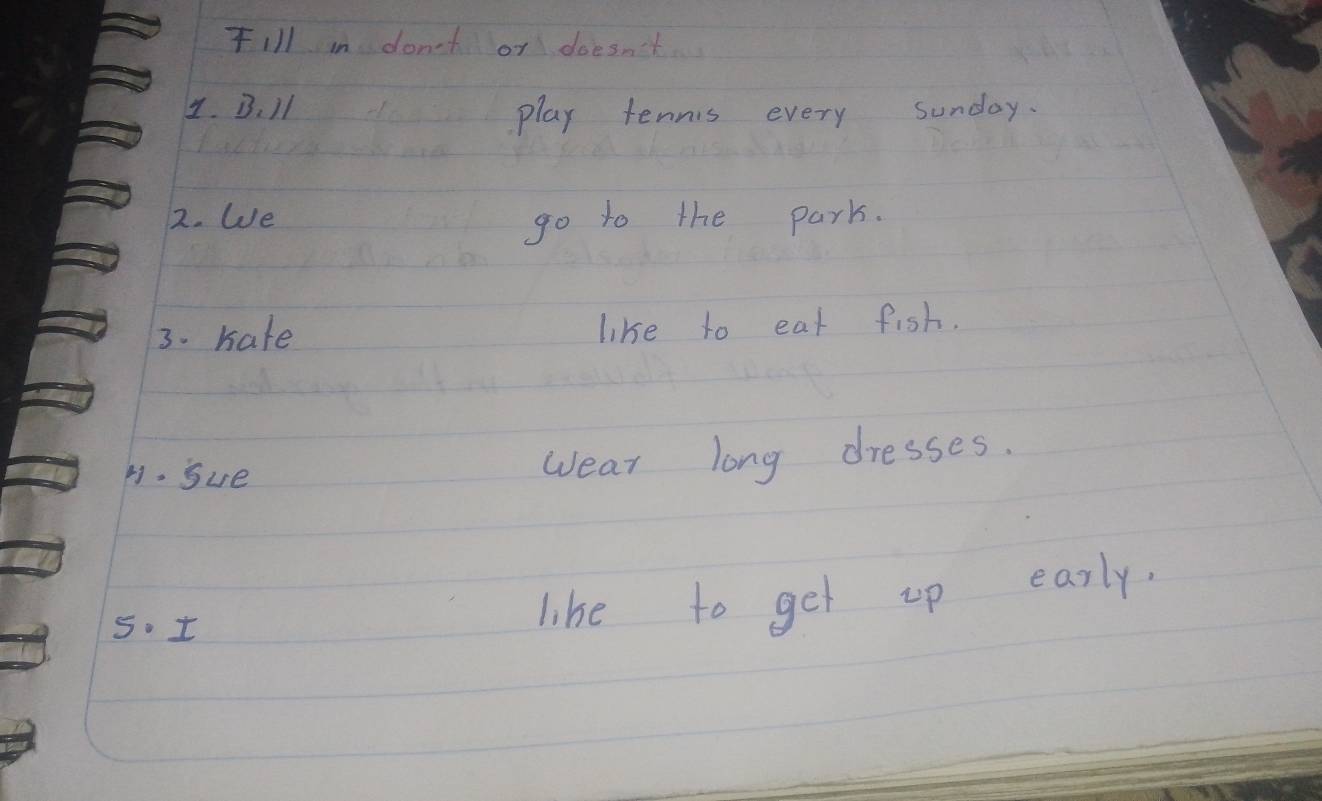 Fill in don't or doesn't
1. Bill play tennis every Sunday.
2. We go to the park.
3. Kate like to eat fish.
4. Sue wear long dresses.
5. I like to get up early.